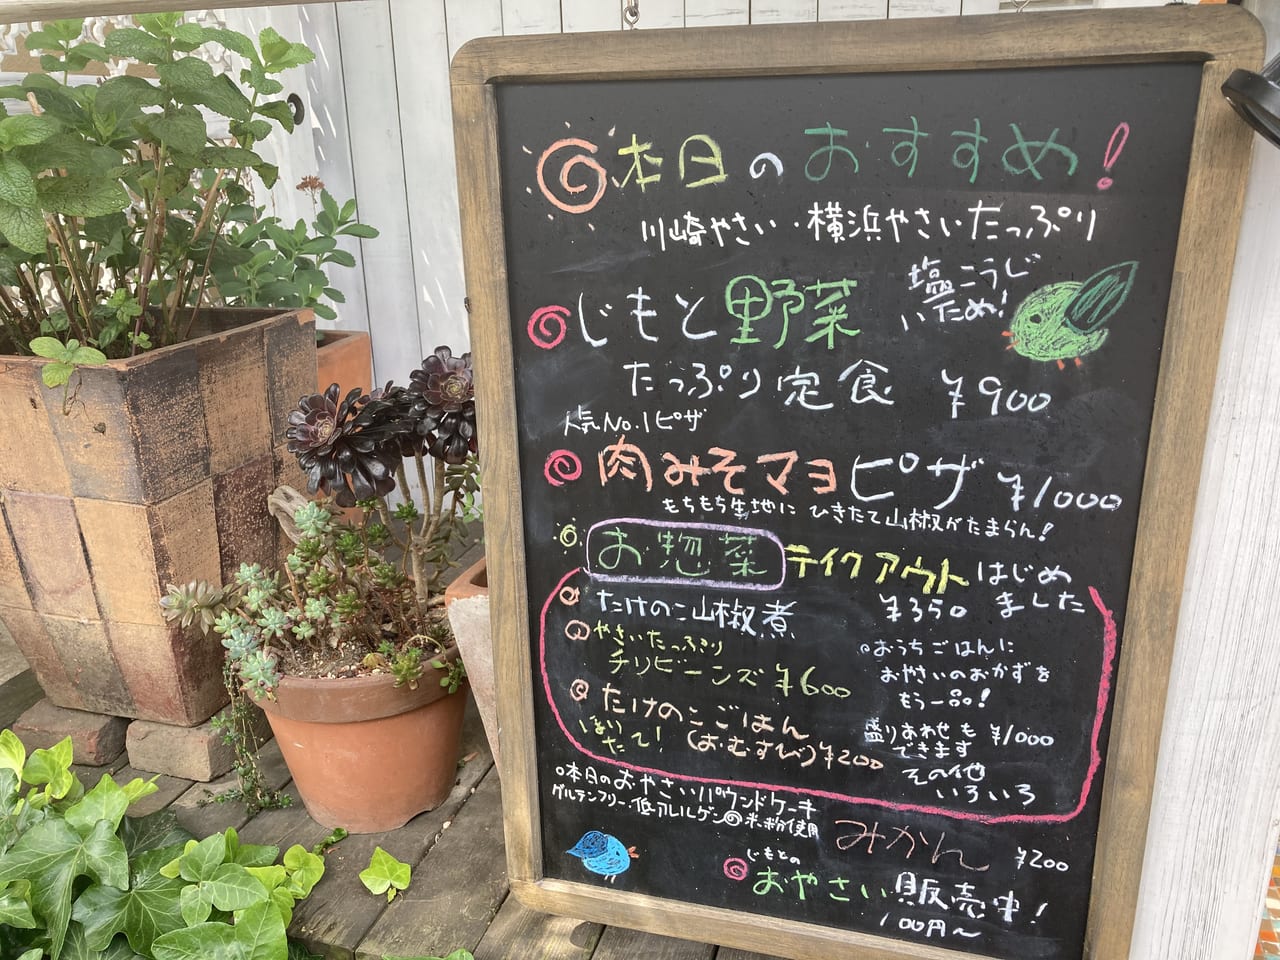 本日のおすすめ!
川崎やさい・横浜やさいたっぷり
じもと野菜
塩こうじ
いため!
たっぷり定食 ¥900
人気No.1ピザ
肉みそマヨピザ ¥1000
もちもち生地に ひきたて山椒がたまらん!
お惣菜 テイクアウトはじめ
ました
たけのこ山椒煮 ¥350
やさいたっぷり
チリビーンズ ¥600
たけのこごはん
ほりたて! (おむすび) ¥200
おうちごはんに
おやさいのおかずを
もう一品!
盛りあわせも ¥1000
できます
その他
いろいろ
本日のおやさいパウンドケーキ
グルテンフリー・低アレルゲンの米粉使用
みかん ¥200
じもとの
おやさい販売中!
100円〜